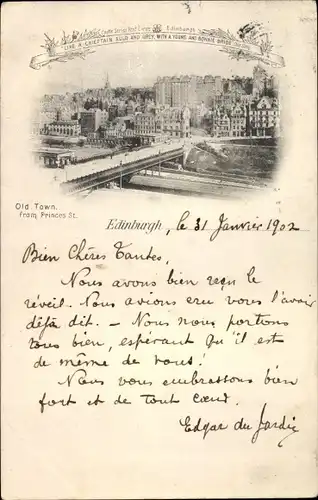 Edinburgh
LIKE A CHIEFTAIN AULD AND GREY, WITH A YOUNG AND BONNIE BRIDE
Old Town,
from Princes St.
Edinburgh, le 31 Janvier 1902
Bien Chères Tantes,
Nous avons bien reçu le
réveil. Nous avions cru vous l'avoir
déjà dit. – Nous nous portons
tous bien, espérant qu'il est
de même de vous!
Nous vous embrassons bien
fort et de tout cœur.
Edgar du Jardin